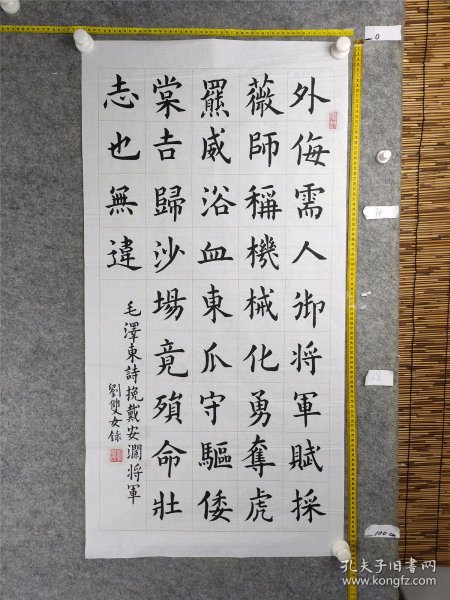 外侮需人御將軍賦採
薇師稱機械化勇奪虎
羆威浴血東瓜守驅倭
棠吉歸沙場竟殞命壯
志也無違
毛澤東詩挽戴安瀾將軍
劉雙女錄
0
100cm
孔夫子旧书网
www.kongfz.com